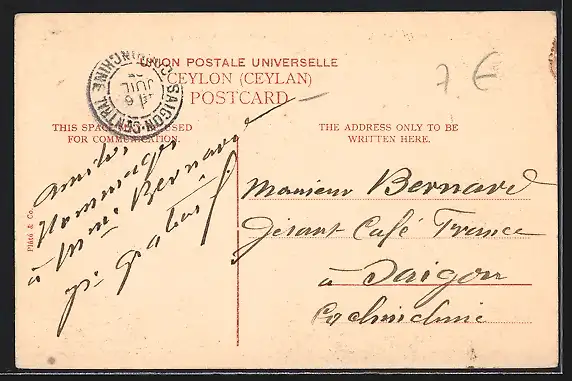 UNION POSTALE UNIVERSELLE
CEYLON (CEYLAN)
POSTCARD
SAIGON-CENTRAL COCHINCHINE
JUIL
7 €
THIS SPACE USED
FOR COMMUNICATION.
THE ADDRESS ONLY TO BE
WRITTEN HERE.
Hommages
à Mme Bernard
Plâté & Co.
Monsieur Bernard
Gérant Café France
à Saigon
Cochinchine